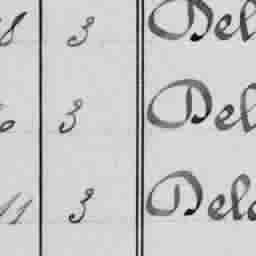 8 3 Del
3 Del
11 3 Dela